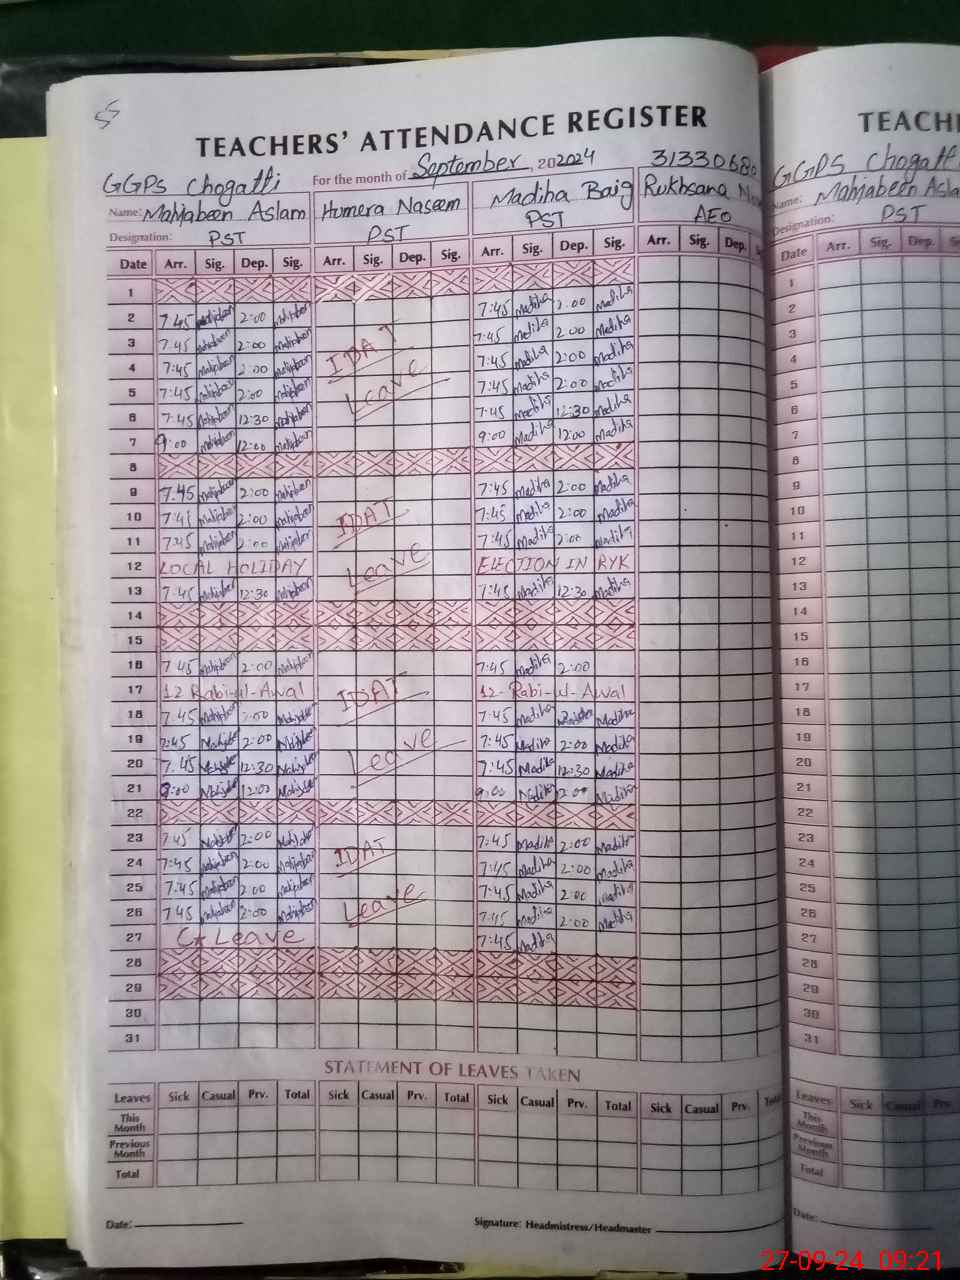 55
TEACHERS' ATTENDANCE REGISTER
TEACHE
GGPS Chogatti For the month of September, 202024 3133068
GGPS Chogatti
Name: Mahjabeen Aslam Humera Naseem Madiha Baig Rukhsana
Name: Mahjabeen Asla
Designation: PST PST PST AEO
Designation: PST
Date Arr. Sig. Dep. Sig. Arr. Sig. Dep. Sig. Arr. Sig. Dep. Sig. Arr. Sig. Dep.
Date Arr. Sig. Dep.
1 1
2 7:45 Mahjabeen 2:00 Mahjabeen 7:45 Madiha 2:00 Madiha 2
3 7:45 Mahjabeen 2:00 Mahjabeen 7:45 Madiha 2:00 Madiha 3
4 7:45 Mahjabeen 2:00 Mahjabeen IDAT 7:45 Madiha 2:00 Madiha 4
5 7:45 Mahjabeen 2:00 Mahjabeen Leave 7:45 Madiha 2:00 Madiha 5
6 7:45 Mahjabeen 12:30 Mahjabeen 7:45 Madiha 12:30 Madiha 6
7 9:00 Mahjabeen 12:00 Mahjabeen 9:00 Madiha 12:00 Madiha 7
8 8
9 7:45 Mahjabeen 2:00 Mahjabeen 7:45 Madiha 2:00 Madiha 9
10 Mahjabeen 2:00 Mahjabeen IDAT 7:45 Madiha 2:00 Madiha 10
11 7:45 Mahjabeen 2:00 Mahjabeen 7:45 Madiha 2:00 Madiha 11
12 LOCAL HOLIDAY Leave ELECTION IN RYK 12
13 7:45 Mahjabeen 12:30 Mahjabeen 7:45 Madiha 12:30 Madiha 13
14 14
15 15
16 7:45 Mahjabeen 2:00 Mahjabeen 7:45 Madiha 2:00 16
17 12 Rabi-ul-Awal IDAT 12-Rabi-ul-Awal 17
18 7:45 Mahjabeen 2:00 Mahjabeen 7:45 Madiha Madiha 18
19 7:45 Mahjabeen 2:00 Mahjabeen Leave 7:45 Madiha 2:00 Madiha 19
20 7:45 Mahjabeen 12:30 Mahjabeen 7:45 Madiha 12:30 Madiha 20
21 9:00 Mahjabeen 12:00 Mahjabeen 9:00 Madiha Madiha 21
22 22
23 7:45 Mahjabeen 2:00 Mahjabeen 7:45 Madiha 2:00 Madiha 23
24 7:45 Mahjabeen 2:00 Mahjabeen IDAT 7:45 Madiha 2:00 Madiha 24
25 7:45 Mahjabeen 2:00 Mahjabeen 7:45 Madiha 2:00 Madiha 25
26 7:45 Mahjabeen 2:00 Mahjabeen Leave 7:45 Madiha 2:00 Madiha 26
27 Leave 7:45 Madiha 27
28 28
29 29
30 30
31 31
STATEMENT OF LEAVES TAKEN
Leaves Sick Casual Prv. Total Sick Casual Prv. Total Sick Casual Prv. Total Sick Casual Prv. Total
Leaves Sick Casual Prv
This Month
This Month
Previous Month
Previous Month
Total
Total
Date: Signature: Headmistress/Headmaster
Date:
27-09-24 09:21